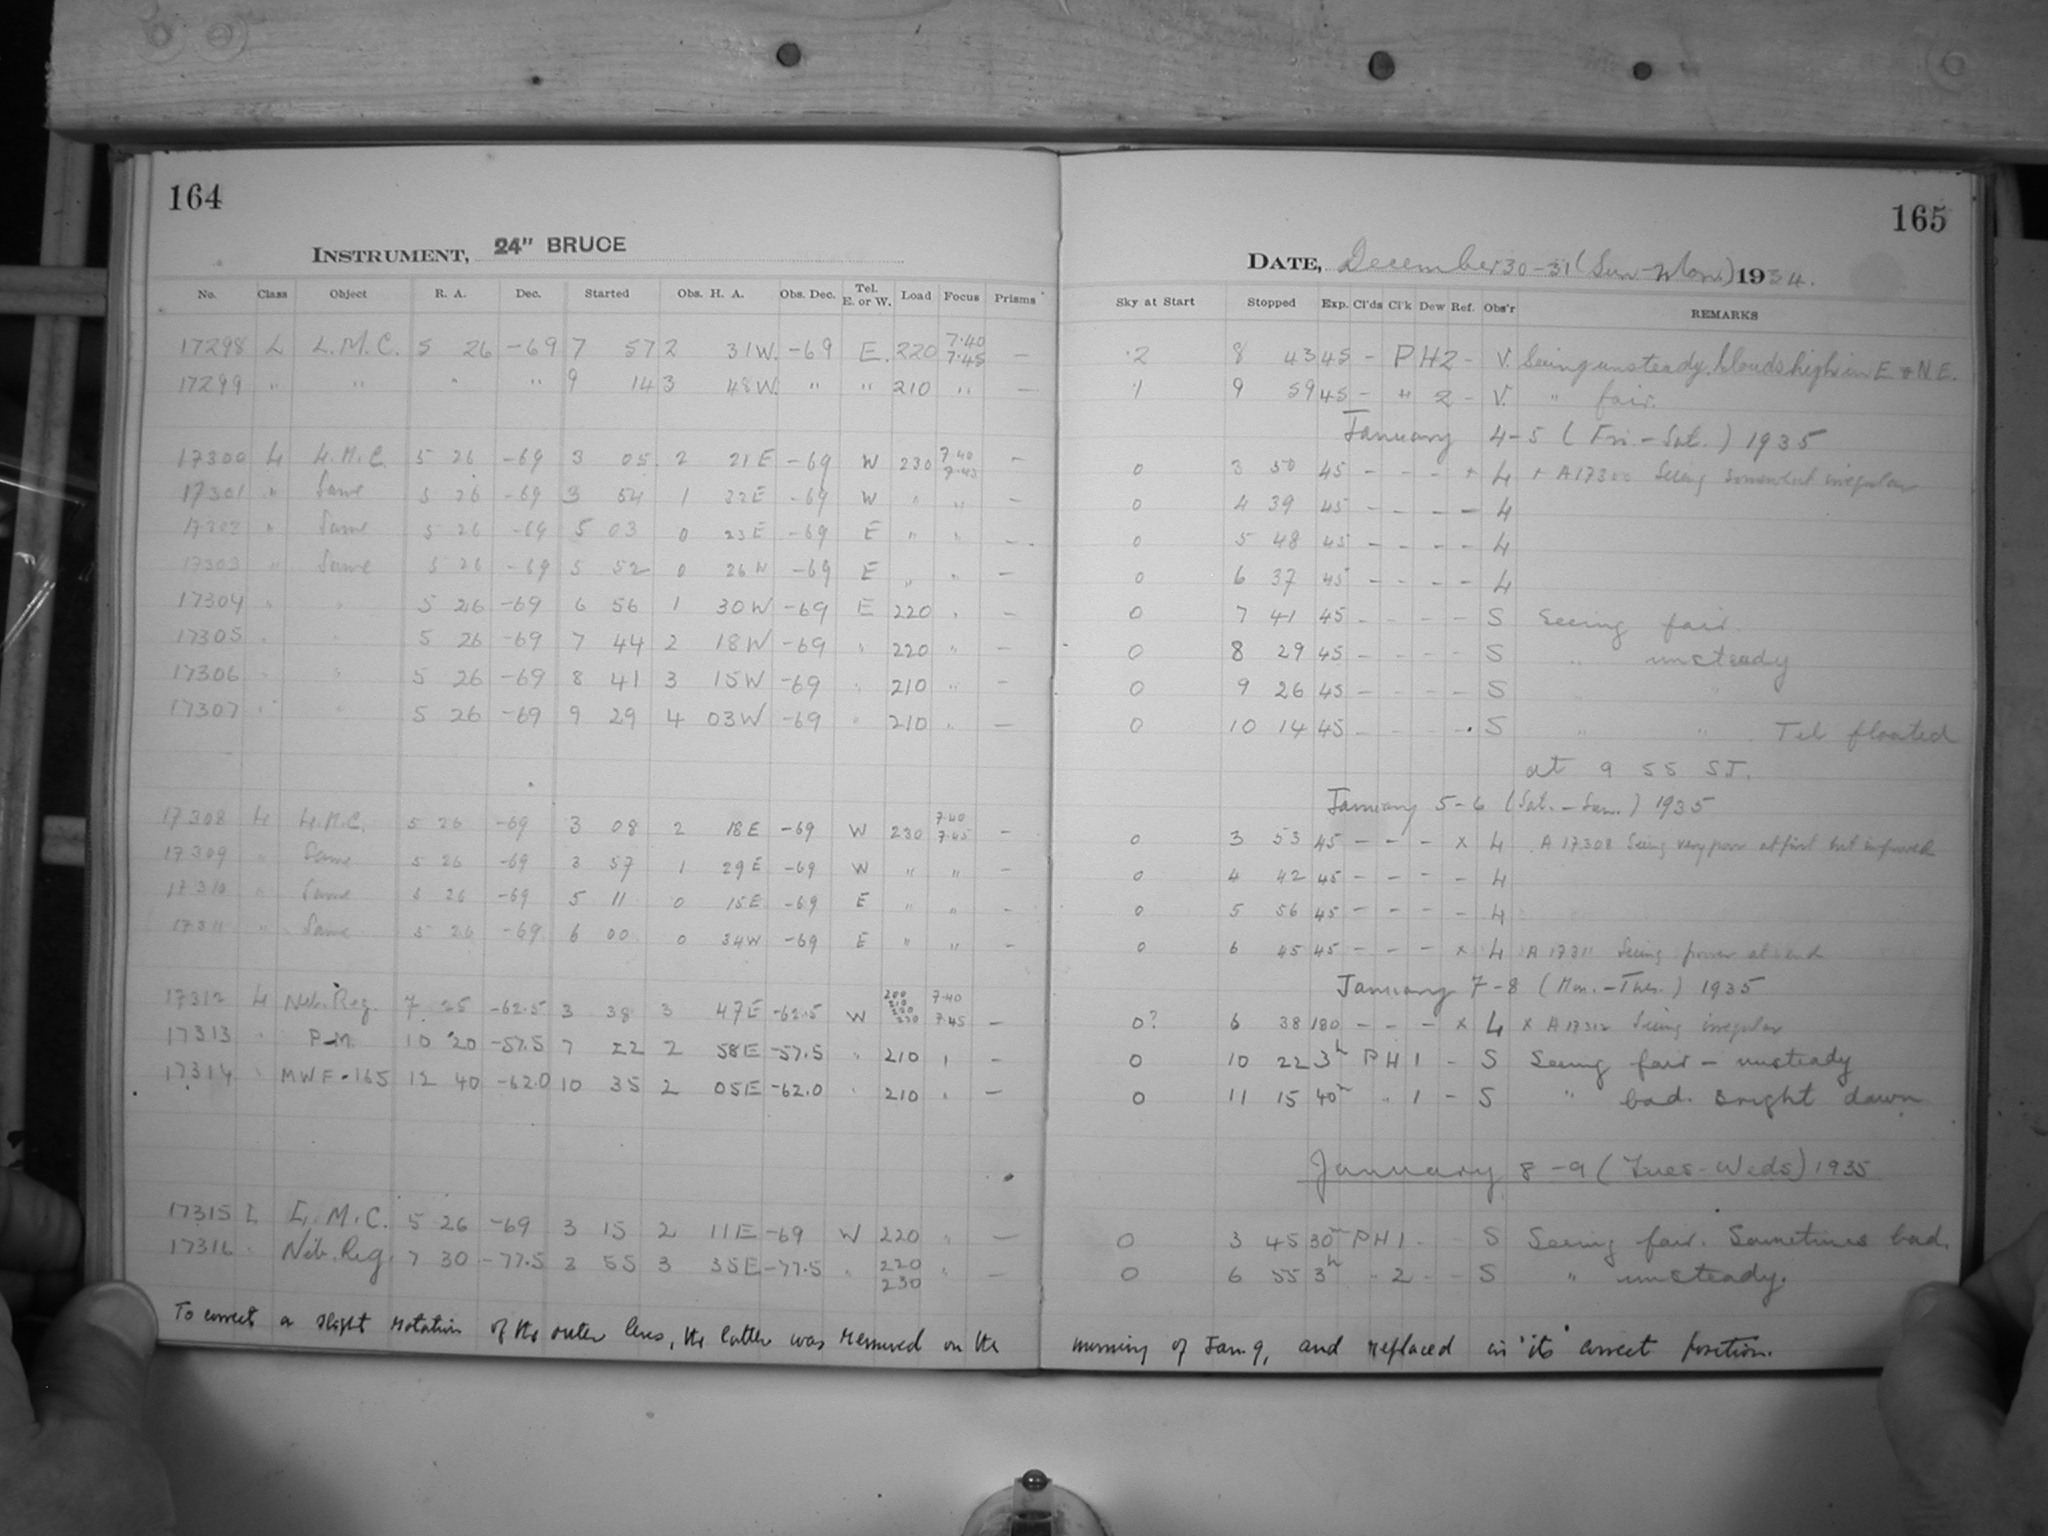 164
INSTRUMENT, 24" BRUCE
No. Class Object R. A. Dec. Started Obs. H. A. Obs. Dec. Tel. E. or W. Load Focus Prisms
17298 L L.M.C. 5 26 -69 7 57 2 31W. -69 E. 220 7.40 7.45 —
17299 " " " " 9 14 3 48W. " " 210 " —
17300 L L.M.C. 5 26 -69 3 05 2 21E -69 W 230 7.40 7.45 —
17301 " Same 5 26 -69 3 54 1 32E -69 W " " —
17302 " Same 5 26 -69 5 03 0 23E -69 E " " —
17303 " Same 5 26 -69 5 52 0 26W -69 E " " —
17304 " " 5 26 -69 6 56 1 30W -69 E 220 " —
17305 " " 5 26 -69 7 44 2 18W -69 " 220 " —
17306 " " 5 26 -69 8 41 3 15W -69 " 210 " —
17307 " " 5 26 -69 9 29 4 03W -69 " 210 " —
17308 L L.M.C. 5 26 -69 3 08 2 18E -69 W 230 7.40 7.45 —
17309 " Same 5 26 -69 3 57 1 29E -69 W " " —
17310 " Same 5 26 -69 5 11 0 15E -69 E " " —
17311 " Same 5 26 -69 6 00 0 34W -69 E " " —
17312 L Neb. Reg. 7 25 -62.5 3 38 3 47E -62.5 W 200 210 220 230 7.40 7.45 —
17313 " P.M. 10 20 -57.5 7 22 2 58E -57.5 " 210 " —
17314 " MWF-165 12 40 -62.0 10 35 2 05E -62.0 " 210 " —
17315 L L.M.C. 5 26 -69 3 15 2 11E -69 W 220 " —
17316 " Neb. Reg. 7 30 -77.5 3 55 3 35E -77.5 " 220 230 " —
To correct a slight rotation of the outer lens, the latter was removed on the
165
DATE, December 30-31 (Sun-Mon.) 1934.
Sky at Start Stopped Exp. Cl'ds Cl'k Dew Ref. Obs'r REMARKS
.2 8 43 45 - PH 2 - V. Seeing unsteady. Clouds high in E & N E.
.1 9 59 45 - " 2 - V. " fair.
January 4-5 (Fri.-Sat.) 1935
0 3 50 45 - - - + L + A17300 Seeing somewhat irregular
0 4 39 45 - - - - L
0 5 48 45 - - - - L
0 6 37 45 - - - - L
0 7 41 45 - - - - S Seeing fair.
0 8 29 45 - - - - S " unsteady
0 9 26 45 - - - - S " "
0 10 14 45 - - - - S " " Tel. floated
at 9 55 S.T.
January 5-6 (Sat.-Sun.) 1935
0 3 53 45 - - - x L A 17308 Seeing very poor at first but improved
0 4 42 45 - - - - L
0 5 56 45 - - - - L
0 6 45 45 - - - x L A 17311 Seeing poorer at end
January 7-8 (Mon.-Tues.) 1935
0? 6 38 180 - - - x L x A17312 Seeing irregular
0 10 22 3h PH 1 - S Seeing fair - unsteady
0 11 15 40m " 1 - S " bad. Bright dawn
January 8-9 (Tues-Weds) 1935
0 3 45 30m PH 1 - - S Seeing fair. Sometimes bad.
0 6 55 3h " 2 - - S " unsteady.
morning of Jan. 9, and replaced in 'its' correct position.